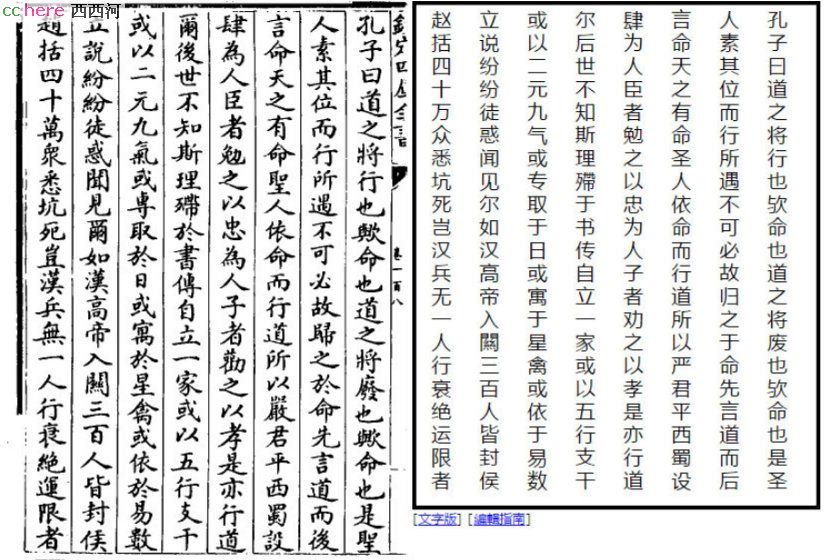 cchere 西西河
欽定四庫全書
卷一百八
孔子曰道之將行也歟命也道之將廢也歟命也是聖
人素其位而行所遇不可必故歸之於命先言道而後
言命天之有命聖人依命而行道所以嚴君平西蜀設
肆為人臣者勉之以忠為人子者勸之以孝是亦行道
爾後世不知斯理殢於書傳自立一家或以五行支干
或以二元九氣或專取於日或寓於星禽或依於易數
立說紛紛徒惑聞見爾如漢高帝入關三百人皆封侯
趙括四十萬衆悉坑死豈漢兵無一人行衰絕運限者
孔子曰道之将行也欤命也道之将废也欤命也是圣
人素其位而行所遇不可必故归之于命先言道而后
言命天之有命圣人依命而行道所以严君平西蜀设
肆为人臣者勉之以忠为人子者劝之以孝是亦行道
尔后世不知斯理殢于书传自立一家或以五行支干
或以二元九气或专取于日或寓于星禽或依于易数
立说纷纷徒惑闻见尔如汉高帝入闗三百人皆封侯
赵括四十万众悉坑死岂汉兵无一人行衰绝运限者
[文字版] [編輯指南]